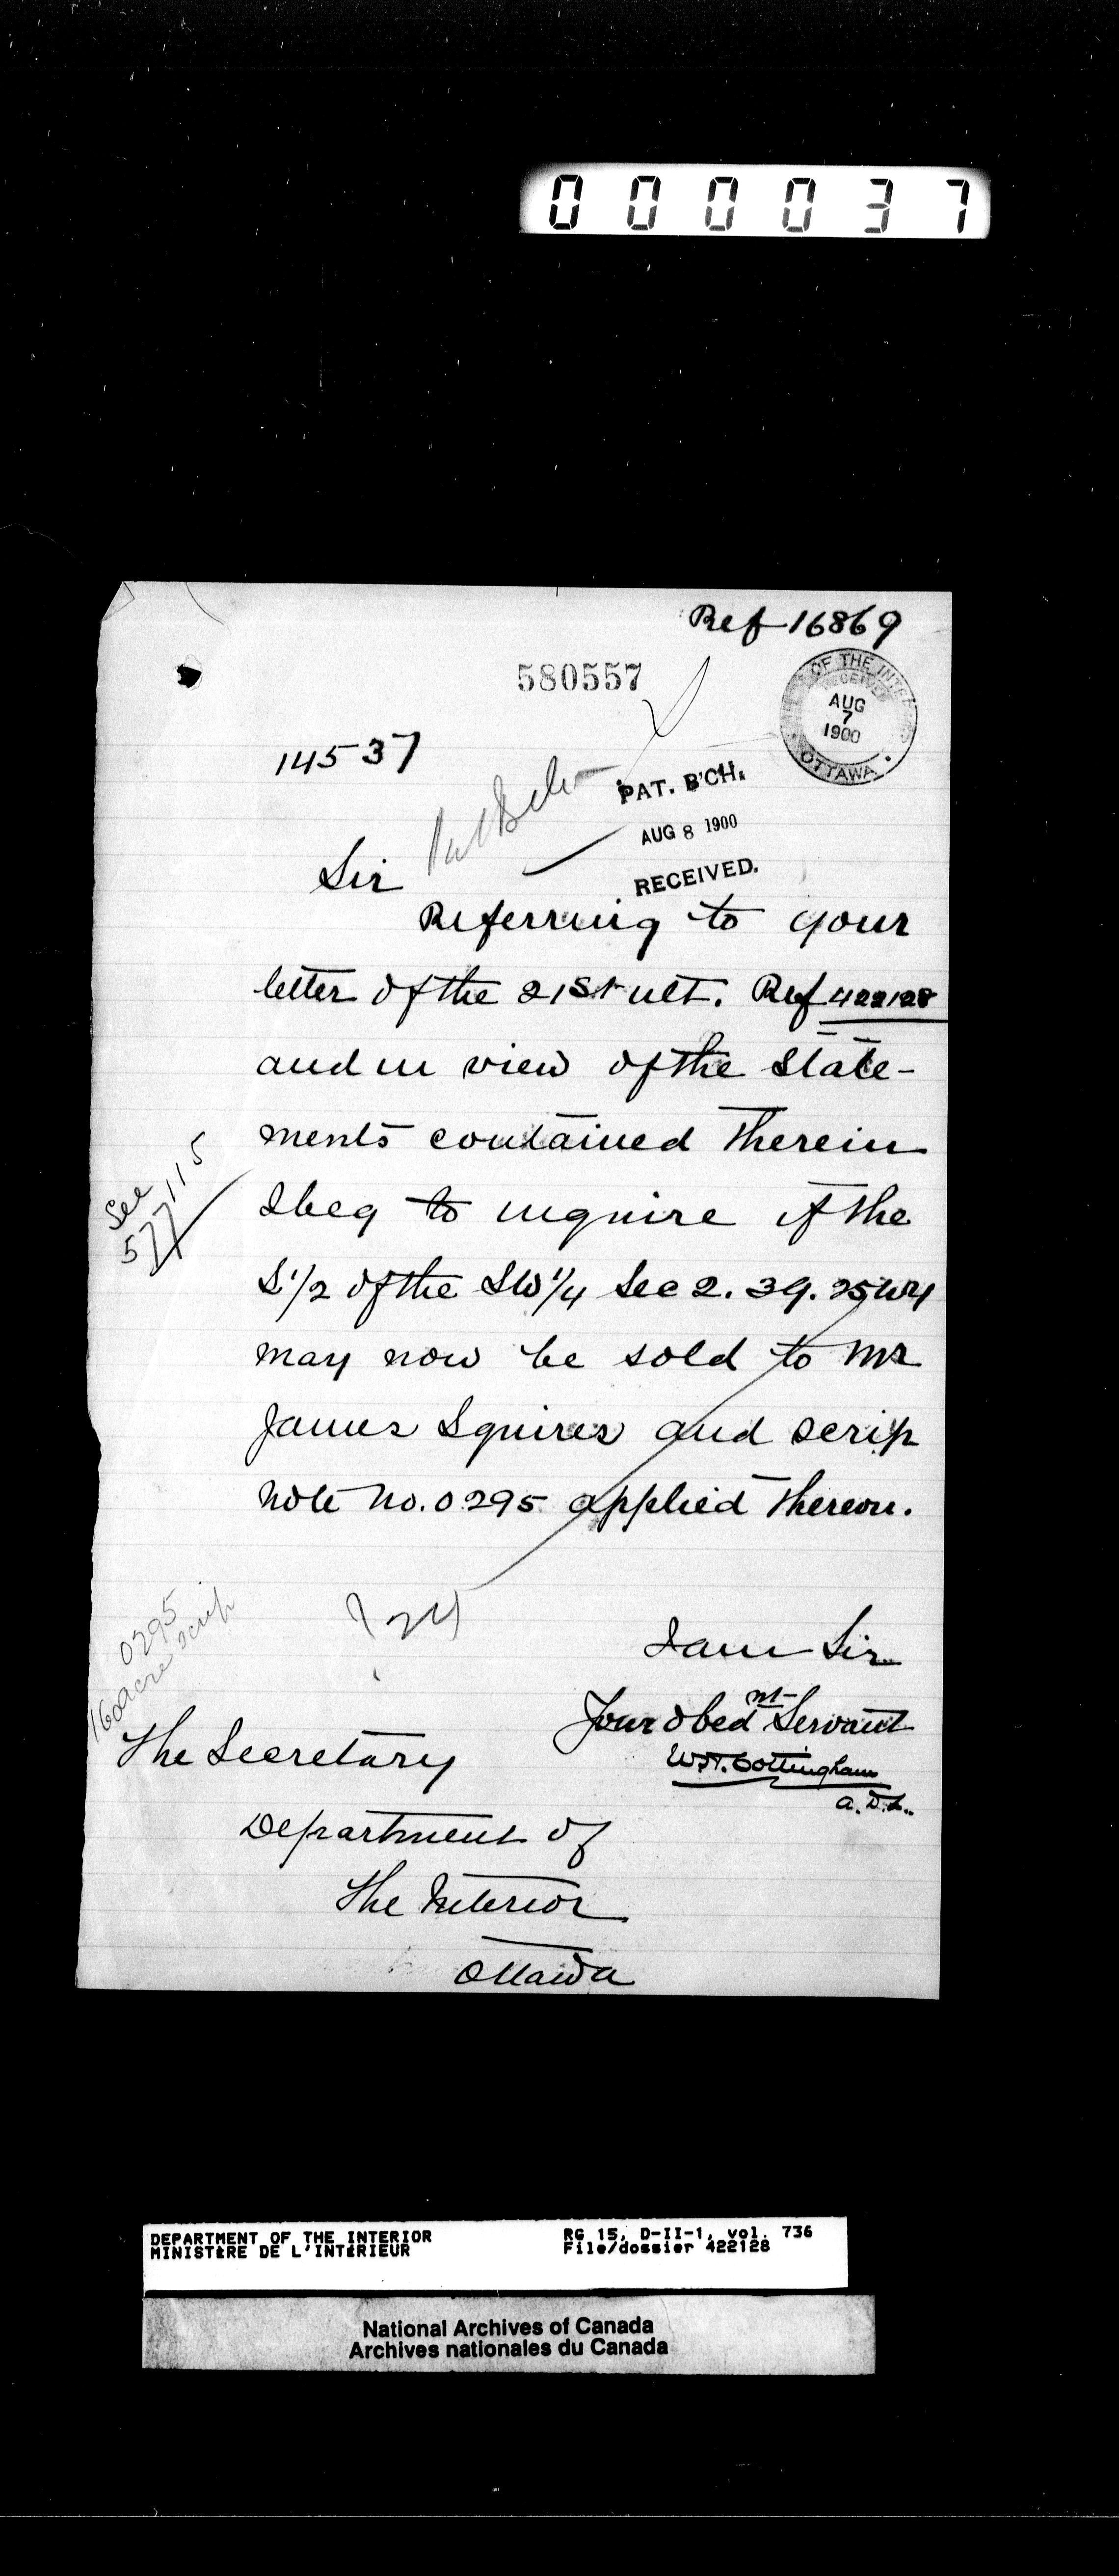 000037
Ref 16869
580557
OF THE INTERIOR
RECEIVED
AUG
7
1900
OTTAWA
14537
PAT. B'CH.
AUG 8 1900
RECEIVED.
Sir
Referring to your
letter of the 21st ult. Ref 422128
and in view of the state-
ments contained therein
I beg to inquire if the
S 1/2 of the SW 1/4 Sec 2. 39. 25 W4
may now be sold to Mr
James Squires and scrip
note No. 0295 applied thereon.
See
577115
0295
160 acre scrip
I am Sir
Your obed nt Servant
W.H. Cottingham
A.D.L.
The Secretary
Department of
The Interior
Ottawa
DEPARTMENT OF THE INTERIOR
MINISTÈRE DE L'INTÉRIEUR
RG 15, D-II-1, vol. 736
File/dossier 422128
National Archives of Canada
Archives nationales du Canada